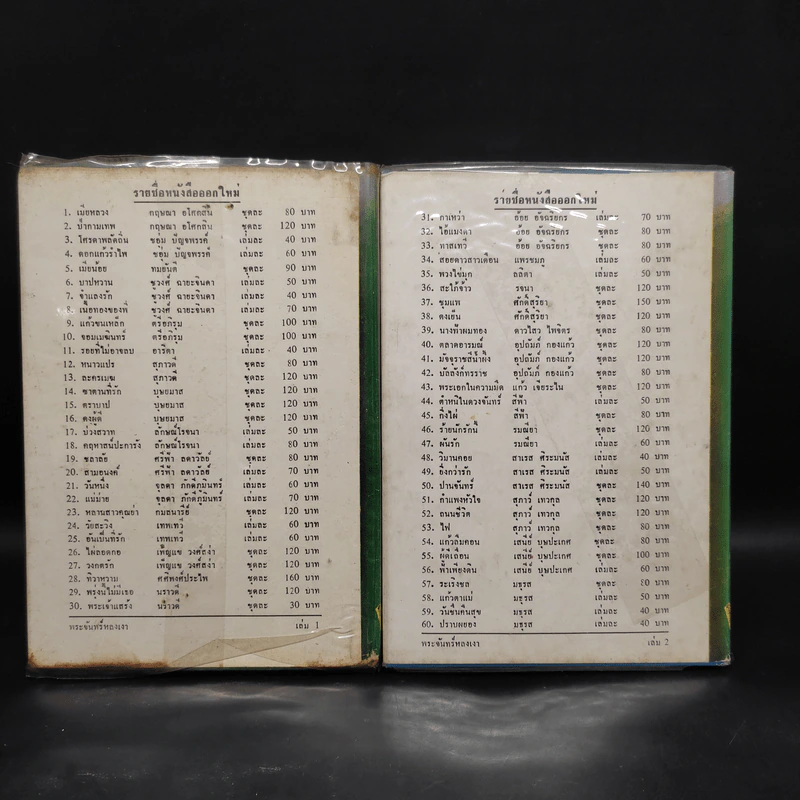 รายชื่อหนังสือออกใหม่
1. เมียหลวง กฤษณา อโศกสิน ชุดละ 80 บาท
2. ป่ากามเทพ กฤษณา อโศกสิน ชุดละ 120 บาท
3. โศรดาพลัดถิ่น ชอุ่ม ปัญจพรรค์ เล่มละ 40 บาท
4. ดอกแก้วรำไพ ชอุ่ม ปัญจพรรค์ เล่มละ 60 บาท
5. เมียน้อย ทมยันตี ชุดละ 90 บาท
6. บาปหวาน ชูวงศ์ ฉายะจินดา เล่มละ 50 บาท
7. จำเลยรัก ชูวงศ์ ฉายะจินดา เล่มละ 40 บาท
8. เนื้อทองของพี่ ชูวงศ์ ฉายะจินดา เล่มละ 70 บาท
9. แก้วขนเหล็ก ตรีอภิรุม ชุดละ 100 บาท
10. จอมเมฆินทร์ ตรีอภิรุม ชุดละ 100 บาท
11. รอยที่ไม่อาจลบ อาริตา เล่มละ 40 บาท
12. หนาวแปร สุภาวดี ชุดละ 80 บาท
13. ละครเมฆ สุภาวดี ชุดละ 120 บาท
14. ซาตานที่รัก บุษยมาส ชุดละ 120 บาท
15. ตราบาป บุษยมาส ชุดละ 120 บาท
16. ดงผู้ดี บุษยมาส ชุดละ 120 บาท
17. บ่วงสวาท ลักษณ์โรจนา เล่มละ 50 บาท
18. คฤหาสน์ปะการัง ลักษณ์โรจนา ชุดละ 80 บาท
19. ชลาลัย ศรีฟ้า ลดาวัลย์ ชุดละ 80 บาท
20. สามอนงค์ ศรีฟ้า ลดาวัลย์ เล่มละ 70 บาท
21. วันหนึ่ง จุลดา ภักดีภูมินทร์ เล่มละ 60 บาท
22. แม่ม่าย จุลดา ภักดีภูมินทร์ เล่มละ 70 บาท
23. หลานสาวคุณย่า กมลนารีย์ ชุดละ 120 บาท
24. วัยละวิง เทพเทวี เล่มละ 60 บาท
25. อันเป็นที่รัก เทพเทวี เล่มละ 60 บาท
26. ไผ่ลอดกอ เพ็ญแข วงศ์สง่า ชุดละ 120 บาท
27. วงกตรัก เพ็ญแข วงศ์สง่า ชุดละ 120 บาท
28. ทิวาหวาม ศศิพงศ์ประไพ ชุดละ 160 บาท
29. พรุ่งนี้ไม่มีเธอ นราวดี ชุดละ 120 บาท
30. พระเจ้าแสร้ง นราวดี ชุดละ 30 บาท
พระจันทร์หลงเงา เล่ม 1
รายชื่อหนังสือออกใหม่
31. กาเหว่า อ้อย อัจฉริยกร เล่มละ 70 บาท
32. ไอ้แมงดา อ้อย อัจฉริยกร ชุดละ 80 บาท
33. ทาสเทวี อ้อย อัจฉริยกร ชุดละ 80 บาท
34. สอยดาวสาวเดือน แพรชมภู เล่มละ 60 บาท
35. พวงไข่มุก ลลิตา เล่มละ 50 บาท
36. สะใภ้จ้าว รจนา ชุดละ 120 บาท
37. ขุมแพ ศักดิ์สุริยา ชุดละ 150 บาท
38. ดงเย็น ศักดิ์สุริยา ชุดละ 120 บาท
39. นางฟ้าผมทอง ดาวไสว ไพจิตร ชุดละ 80 บาท
40. ตลาดอารมณ์ อุปถัมภ์ กองแก้ว ชุดละ 120 บาท
41. มัจจุราชสีน้ำผึ้ง อุปถัมภ์ กองแก้ว ชุดละ 80 บาท
42. บัลลังก์ทรราช อุปถัมภ์ กองแก้ว ชุดละ 80 บาท
43. พระเอกในความมืด แก้ว เจียระไน ชุดละ 120 บาท
44. ตำหนิในดวงจันทร์ สีฟ้า เล่มละ 50 บาท
45. กิ่งไผ่ สีฟ้า ชุดละ 80 บาท
46. ร้ายนักรักนี้ รมณียา ชุดละ 120 บาท
47. ฝนรัก รมณียา เล่มละ 60 บาท
48. วิมานคอย สาเรส ศิระมนัส เล่มละ 40 บาท
49. ยิ่งกว่ารัก สาเรส ศิระมนัส เล่มละ 50 บาท
50. ปานจันทร์ สาเรส ศิระมนัส ชุดละ 140 บาท
51. กำแพงหัวใจ สุภาว์ เทวกุล ชุดละ 120 บาท
52. ถนนชีวิต สุภาว์ เทวกุล ชุดละ 120 บาท
53. ไฟ สุภาว์ เทวกุล ชุดละ 80 บาท
54. แก้วลืมคอน เสนีย์ บุษปะเกศ ชุดละ 80 บาท
55. ผู้ดีเถื่อน เสนีย์ บุษปะเกศ ชุดละ 100 บาท
56. ฟ้าเพียงดิน เสนีย์ บุษปะเกศ เล่มละ 60 บาท
57. ระเริงชล มธุรส ชุดละ 80 บาท
58. แก้วตาแม่ มธุรส เล่มละ 50 บาท
59. วันชื่นคืนสุข มธุรส เล่มละ 40 บาท
60. ปราบพยอง มธุรส เล่มละ 40 บาท
พระจันทร์หลงเงา เล่ม 2